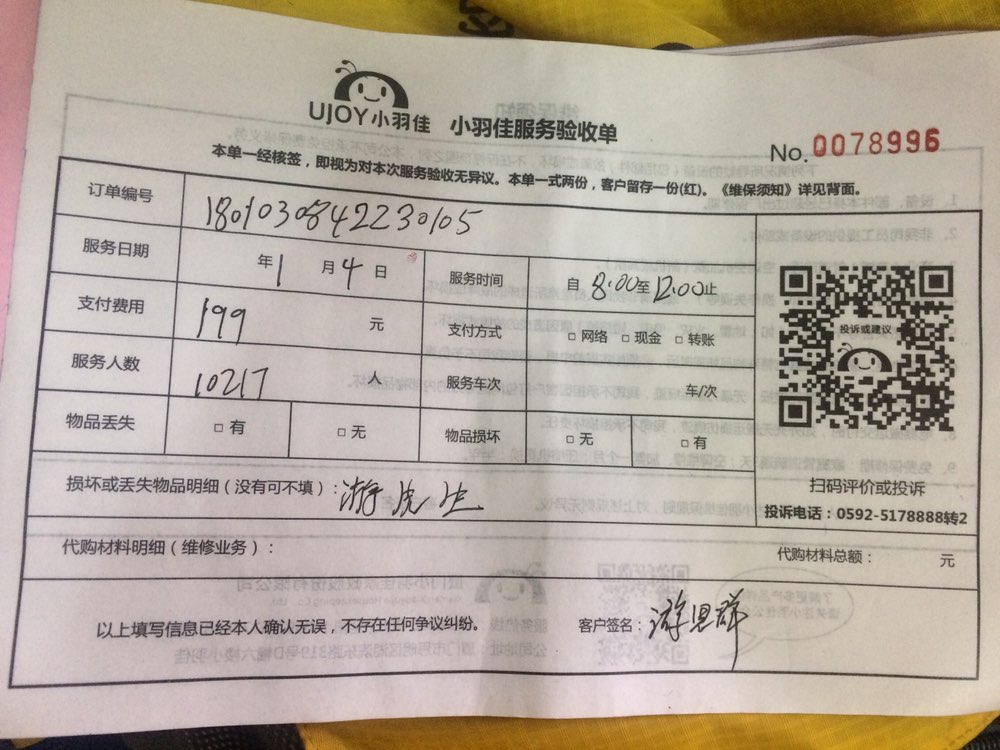 UJOY小羽佳 小羽佳服务验收单
No. 0078996
本单一经核签，即视为对本次服务验收无异议。本单一式两份，客户留存一份(红)。《维保须知》详见背面。
订单编号 1801030842230105
服务日期 年1月4日 服务时间 自8:00至12:00止
支付费用 199 元 支付方式 □网络 □现金 □转账
服务人数 10217 人 服务车次 车/次
物品丢失 □有 □无 物品损坏 □无 □有
投诉或建议
扫码评价或投诉
投诉电话：0592-5178888转2
损坏或丢失物品明细（没有可不填）：游先生
代购材料明细（维修业务）： 代购材料总额： 元
以上填写信息已经本人确认无误，不存在任何争议纠纷。 客户签名：游思群